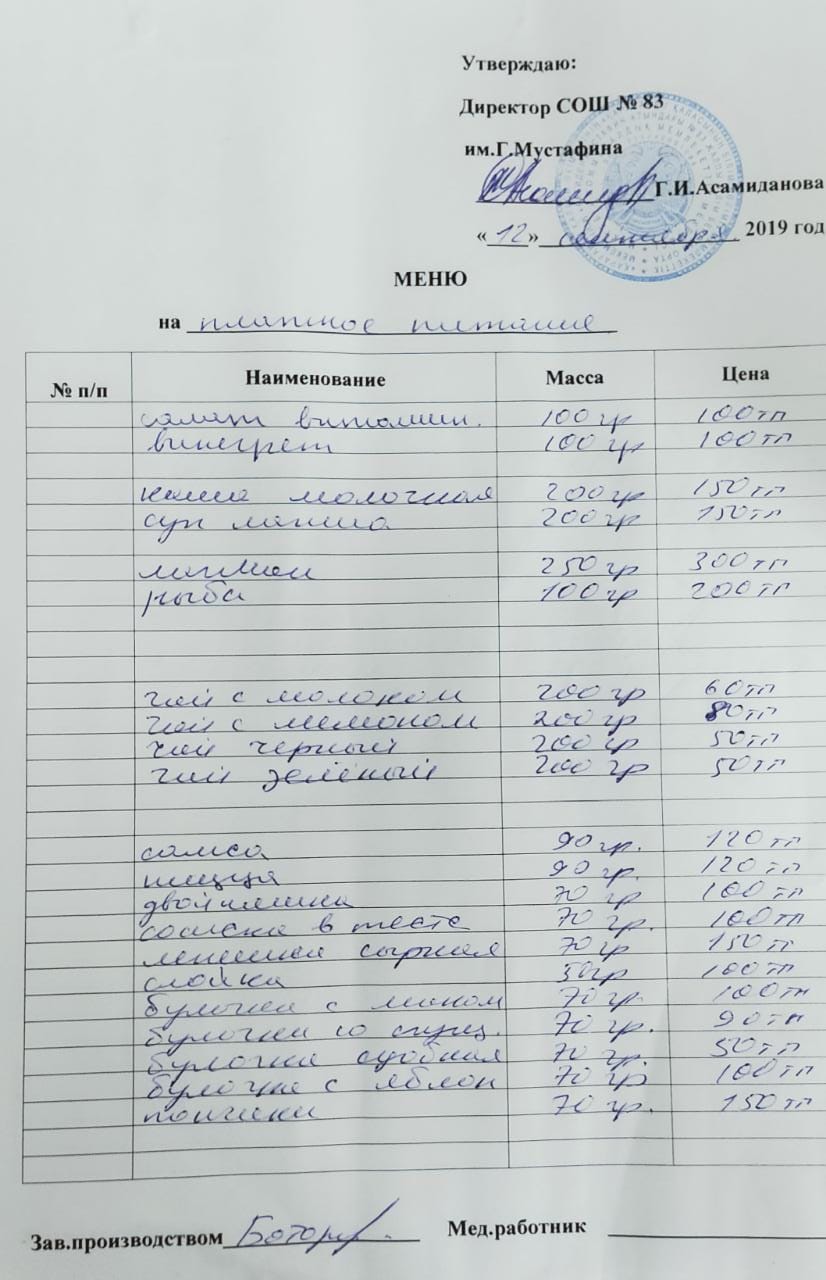 Утверждаю:
Директор СОШ № 83
им.Г.Мустафина
Г.И.Асамиданова
« 12 » сентября 2019 год
МЕНЮ
на платное питание
№ п/п Наименование Масса Цена
салат витамин. 100 гр 100 тг
винегрет 100 гр 100 тг
каша молочная 200 гр 150 тг
суп лапша 200 гр 150 тг
лагман 250 гр 300 тг
рыба 100 гр 200 тг
чай с молоком 200 гр 60 тг
чай с лимоном 200 гр 80 тг
чай черный 200 гр 50 тг
чай зелёный 200 гр 50 тг
самса 90 гр. 120 тг
пицца 90 гр. 120 тг
двойняшка 70 гр 100 тг
сосиска в тесте 70 гр. 100 тг
лепешка сырная 70 гр 150 тг
слойка 50 гр 100 тг
булочка с маком 70 гр. 100 тг
булочка со сгущ. 70 гр. 90 тг
булочка сдобная 70 гр. 50 тг
булочка с яблок 70 гр 100 тг
пончики 70 гр. 150 тг
Зав.производством Мед.работник